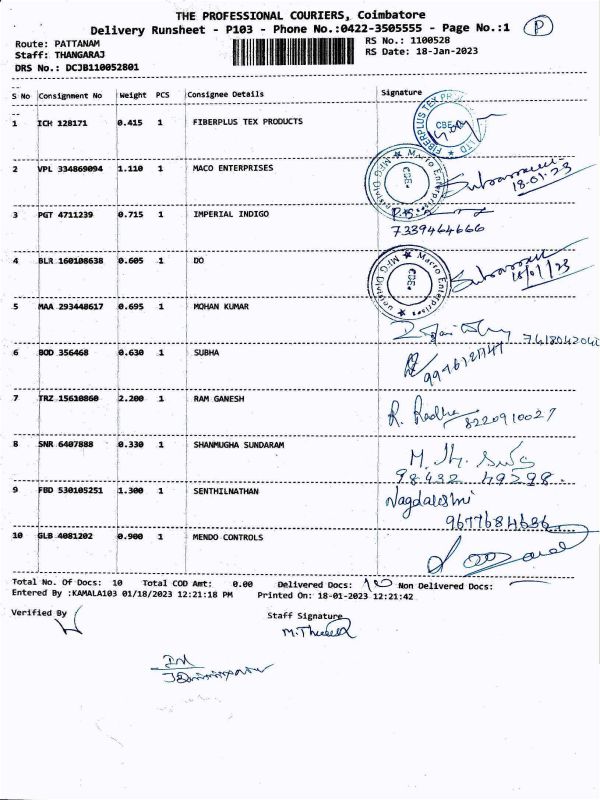 THE PROFESSIONAL COURIERS, Coimbatore
Delivery Runsheet - P103 - Phone No.:0422-3505555 - Page No.:1 P
Route: PATTANAM RS No.: 1100528
Staff: THANGARAJ RS Date: 18-Jan-2023
DRS No.: DCJB110052801
S No Consignment No Weight PCS Consignee Details Signature
1 ICH 128171 0.415 1 FIBERPLUS TEX PRODUCTS
FIBERPLUS TEX LTD CBE
2 VPL 334869094 1.110 1 MACO ENTERPRISES
Macro Enterprises MFG Division CBE 18.01.23
3 PGT 4711239 0.715 1 IMPERIAL INDIGO
7339464666
4 BLR 160108638 0.605 1 DO
Macro Enterprises MFG Division CBE 18/01/23
5 MAA 293448617 0.695 1 MOHAN KUMAR
6 BOD 356468 0.630 1 SUBHA
7 TRZ 15610860 2.200 1 RAM GANESH
R. Radha 8220910027
8 SNR 6407888 0.330 1 SHANMUGHA SUNDARAM
98432 49298.
9 FBD 530105251 1.300 1 SENTHILNATHAN
Nagdalakshmi
9677684636
10 GLB 4081202 0.900 1 MENDO CONTROLS
Total No. Of Docs: 10 Total COD Amt: 0.00 Delivered Docs: 10 Non Delivered Docs:
Entered By :KAMALA103 01/18/2023 12:21:18 PM Printed On: 18-01-2023 12:21:42
Verified By Staff Signature